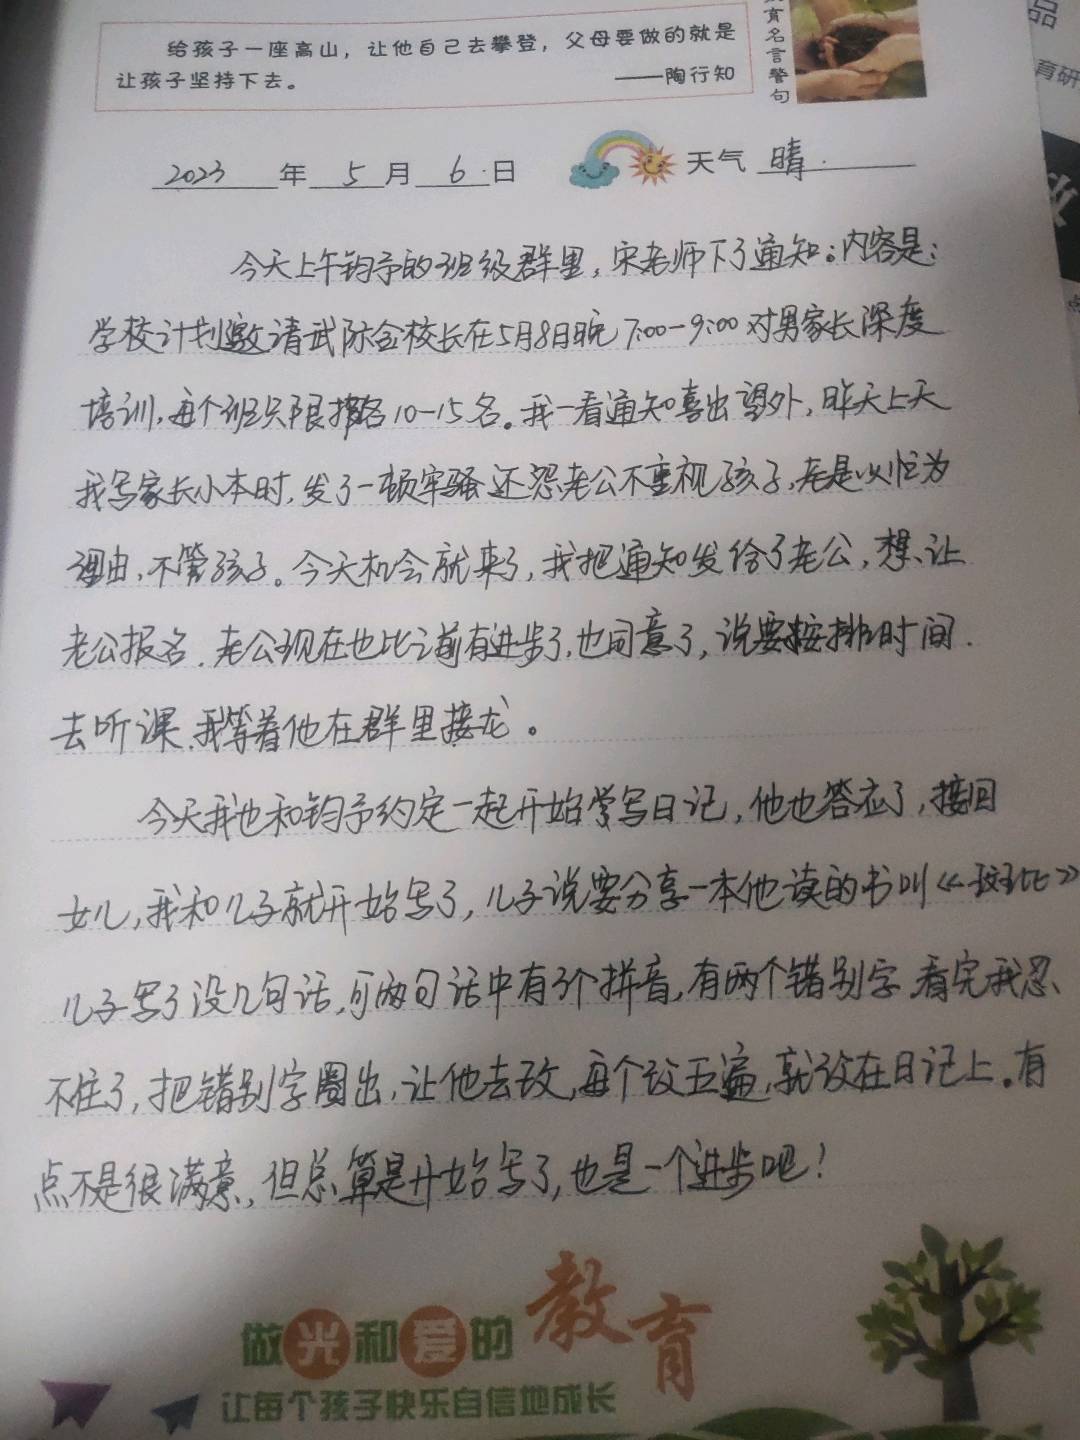 给孩子一座高山，让他自己去攀登，父母要做的就是
让孩子坚持下去。 ——陶行知
育名言警句
品
育研
2023年5月6日 天气 晴
今天上午钧予的班级群里，宋老师下了通知。内容是：
学校计划邀请武际金校长在5月8日晚7:00-9:00对男家长深度
培训，每个班只限报名10-15名。我一看通知喜出望外，昨天上天
我写家长小本时，发了一顿牢骚还怨老公不重视孩子，老是以忙为
理由，不管孩子。今天机会就来了，我把通知发给了老公，想让
老公报名．老公现在也比之前有进步了，也同意了，说要按排时间．
去听课，我等着他在群里接龙。
今天我也和钧予约定一起开始学写日记，他也答应了，接回
女儿，我和儿子就开始写了，儿子说要分享一本他读的书叫《斑比》
儿子写了没几句话，可两句话中有3个拼音，有两个错别字，看完我忍
不住了，把错别字圈出，让他去改，每个改五遍，就改在日记上。有
点不是很满意，但总算是开始写了，也是一个进步吧！
做光和爱的教育
让每个孩子快乐自信地成长